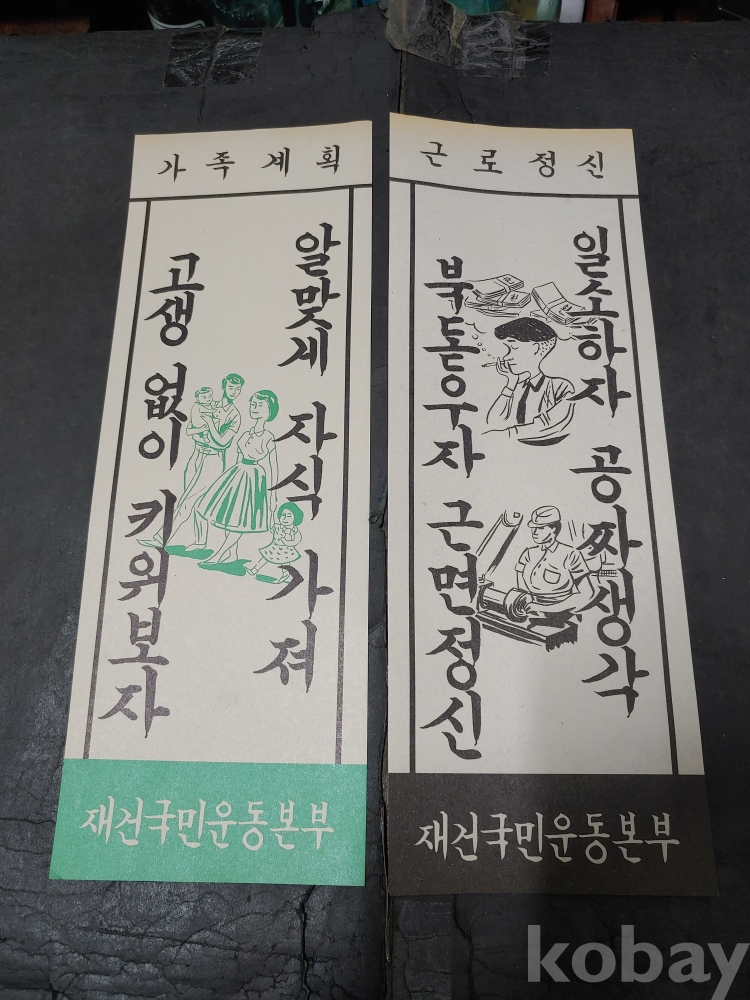 가족계획
알맞세 자식 가져
고생 없이 키워보자
재건국민운동본부
근로정신
일소하자 공짜생각
북돋우자 근면정신
재건국민운동본부
kobay